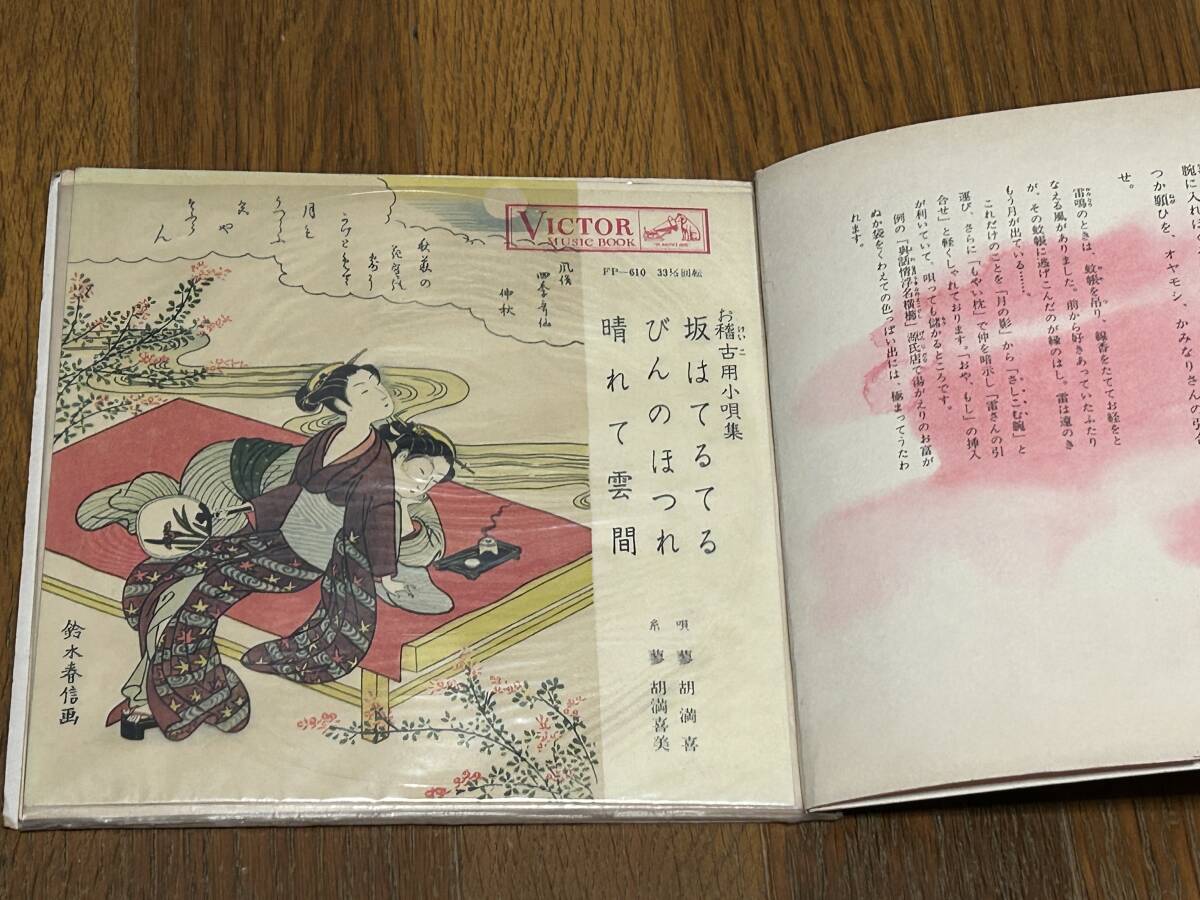 VICTOR
MUSIC BOOK
FP-610 33⅓回転
お稽古用小唄集
けいこ
坂はてるてる
びんのほつれ
晴れて雲間
唄 蓼胡満喜
糸 蓼胡満喜美
風俗
四季哥仙
仲秋
秋萩の
月を
鈴木春信画
腕に入れ
つか願ひを、オヤモシ、かみなりさんの引
せ。
雷鳴のときは、蚊帳を吊り、線香をたててお経をと
なえる風がありました。前から好きあっていたふたり
が、その蚊帳に逃げこんだのが縁のはし。雷は遠のき
もう月が出ている……。
これだけのことを「月の影」から「さしこむ腕」と
運び、さらに「もやい枕」で仲を暗示し「雷さんの引
合せ」と軽くしゃれております。「おや、もし」の挿入
が利いていて、唄っても儲かるところです。
例の「與話情浮名横櫛」源氏店で湯がえりのお富が
ぬか袋をくわえての色っぽい出には、極まってうたわ
れます。